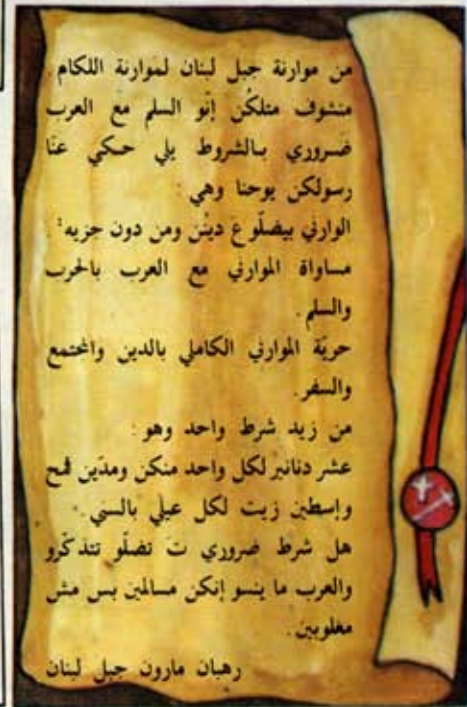 من موارنة جبل لبنان لموارنة اللكام .
منشوف متلكُن إنّو السلم مع العرب
ضروري بالشروط يلي حكي عنّا
رسولكن يوحنا وهي :
الوارني بيضلّو ع دينُن ومن دون جزيه :
مساواة الموارني مع العرب بالحرب
والسلم .
حريّة الموارني الكاملي بالدين والمجتمع
والسفر .
من زيد شرط واحد وهو :
عشر دنانير لكل واحد منكن ومدّين قمح
وإسطين زيت لكل عيلي بالسني .
هل شرط ضروري تَ تضلّو تتذكّرو
والعرب ما ينسو إنكن مسالمين بس مش
مغلوبين .
رهبان مارون جبل لبنان